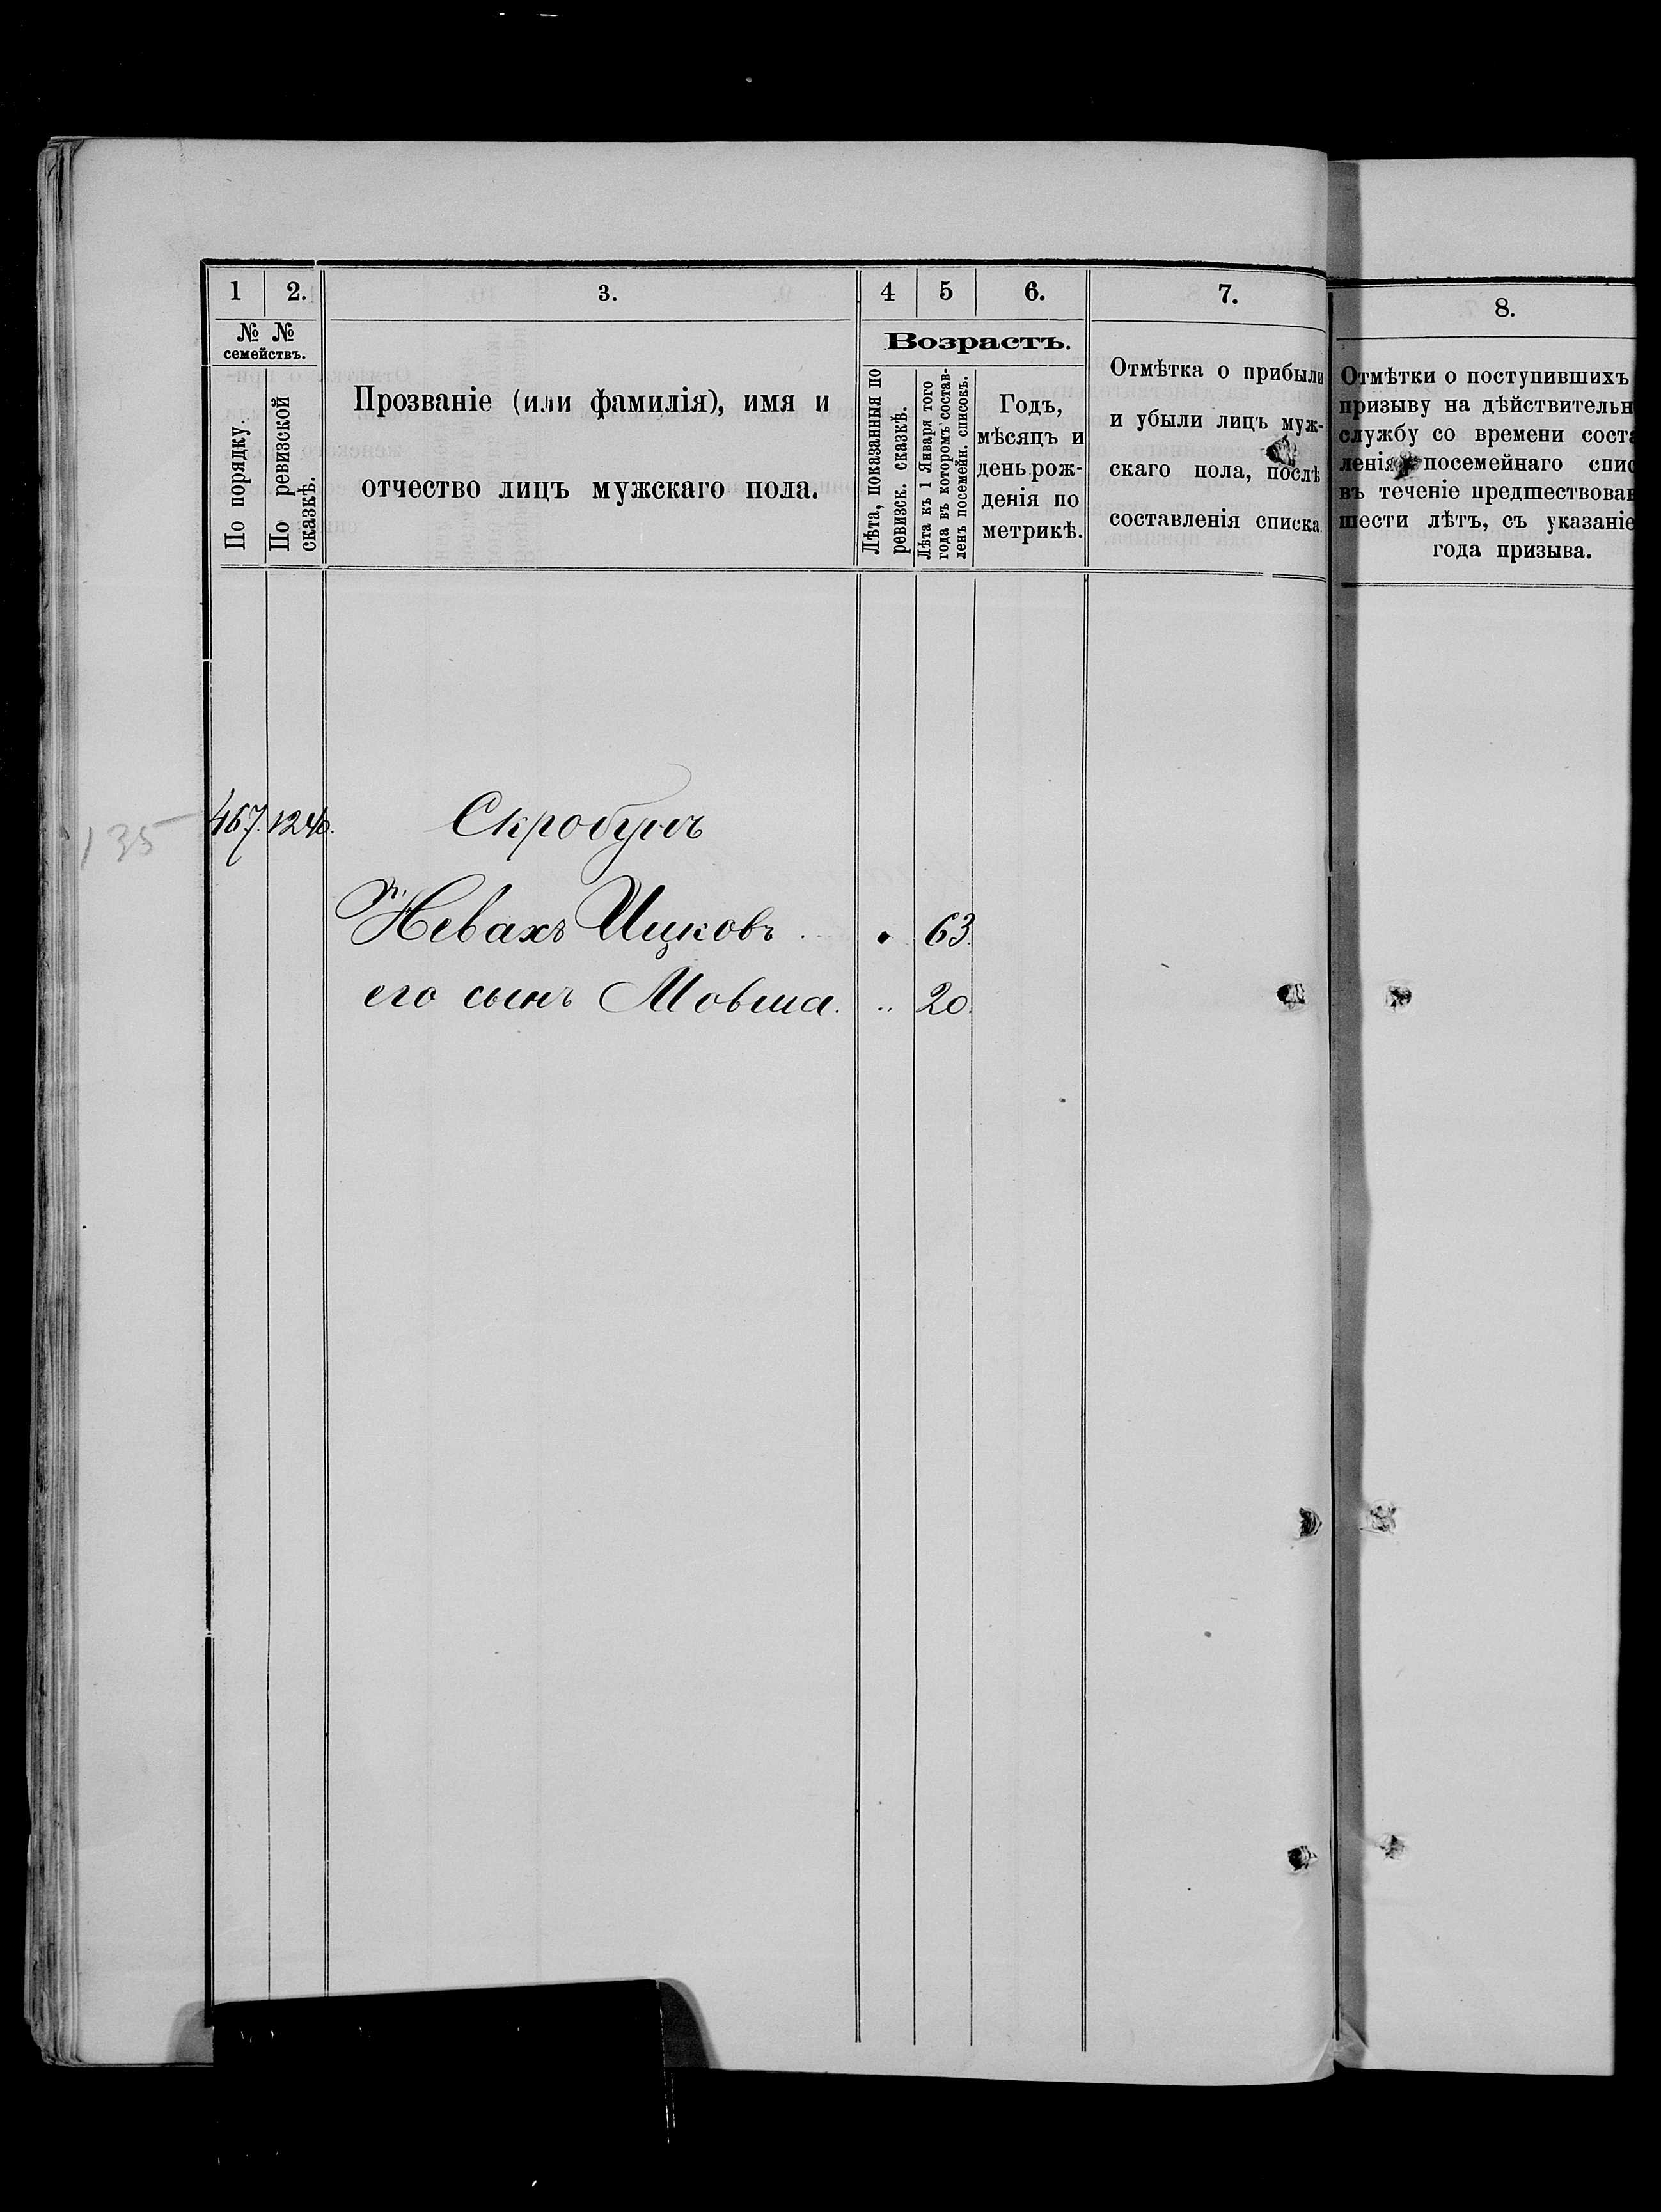 1 2. 3. 4 5 6. 7. 8.
№ № семействъ.
По порядку.
По ревизской сказкѣ.
Прозваніе (или фамилія), имя и
отчество лицъ мужскаго пола.
Возрастъ.
Лѣта, показанныя по
ревизск. сказкѣ.
Лѣта къ 1 Января того
года въ которомъ состав-
ленъ посемейн. списокъ.
Годъ,
мѣсяцъ и
день рож-
денія по
метрикѣ.
Отмѣтка о прибыли
и убыли лицъ муж-
скаго пола, послѣ
составленія списка.
Отмѣтки о поступившихъ
призыву на дѣйствительн
службу со времени соста
ленія посемейнаго спис
въ теченіе предшествовав
шести лѣтъ, съ указаніе
года призыва.
135 467. Скробунъ
Невахъ Ицковъ 63.
его сынъ Мовша. " 20.